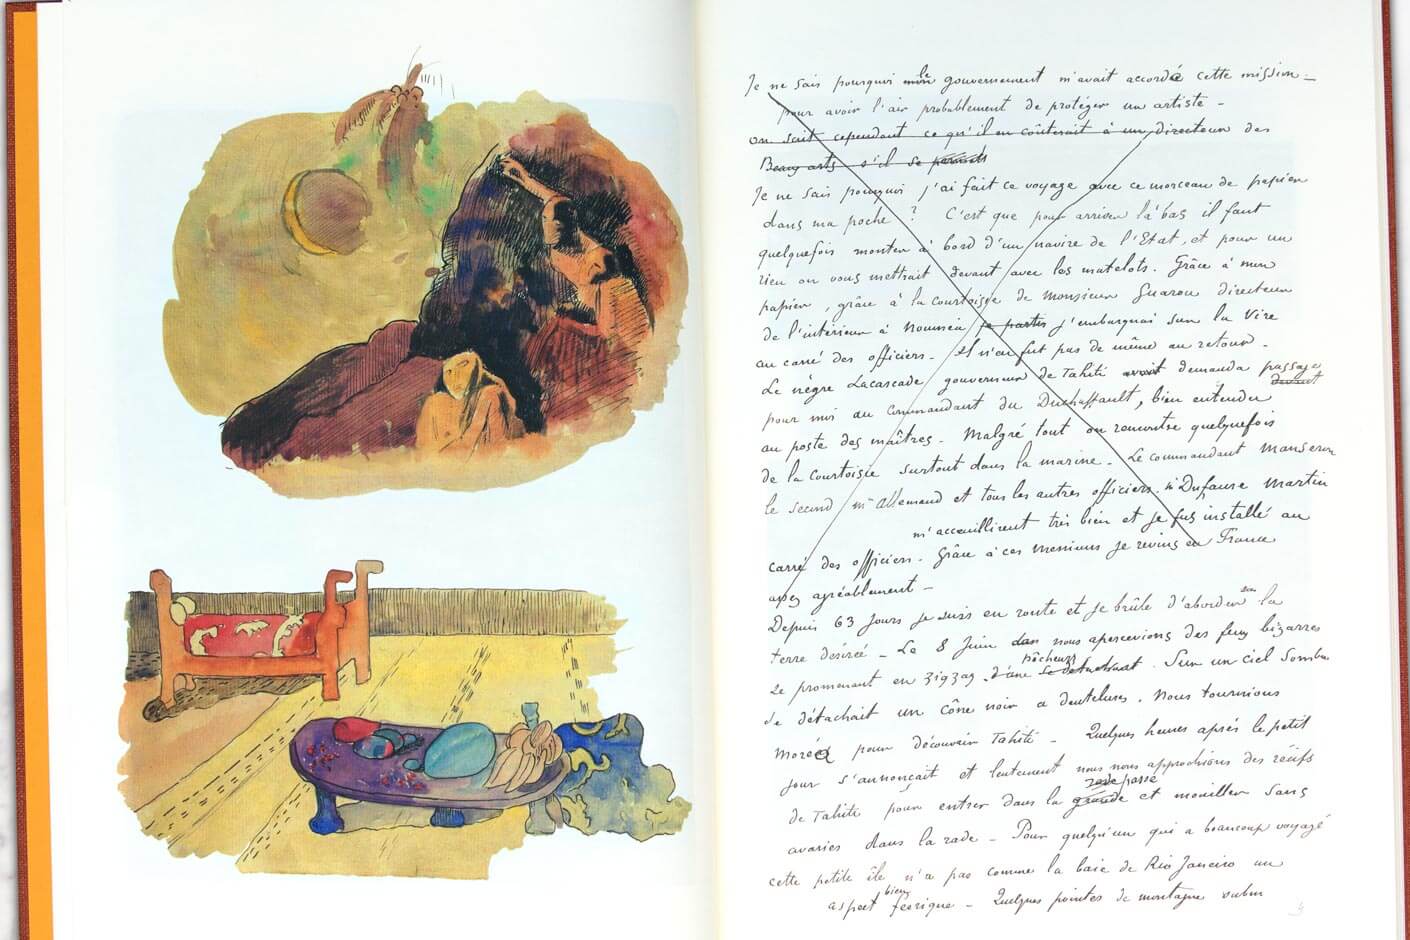 Je ne sais pourquoi le gouvernement m'avait accordé cette mission –
pour avoir l'air probablement de protéger un artiste –
on sait cependant ce qu'il en coûterait à un directeur des
Beaux arts s'il se permet
Je ne sais pourquoi j'ai fait ce voyage avec ce morceau de papier
dans ma poche ? C'est que pour arriver là bas il faut
quelquefois monter à bord d'un navire de l'Etat, et pour un
rien on vous mettrait devant avec les matelots. Grâce à mon
papier, grâce à la courtoisie de Monsieur Guarou directeur
de l'intérieur à Nouméa je partis j'embarquai sur la Vire
au carré des officiers – Il n'en fut pas de même au retour –
Le nègre Lacascade gouverneur de Tahiti avait demanda passage
devant
pour moi au commandant du Duchaffault, bien entendu
au poste des maîtres – Malgré tout on rencontre quelquefois
de la courtoisie surtout dans la marine – Le commandant
le second Mr Allemand et tous les autres officiers, Mr Dufaure Martin
m'accueillirent très bien et je fus installé au
carré des officiers – Grâce à ces messieurs je revins en France
assez agréablement –
Depuis 63 jours je suis en route et je brûle d'aborder la
terre désirée – Le 8 Juin dan nous apercevions des feux bizarres
se promenant en zigzag – pêcheurs Sur un ciel sombre
se détachait un cône noir a dentelures. Nous tournions
Moréa pour découvrir Tahiti – Quelques heures après le petit
jour s'annonçait et lentement nous nous approchions des récifs
passe
de Tahiti pour entrer dans la grande et mouiller sans
avaries dans la rade – Pour quelqu'un qui a beaucoup voyagé
cette petite île n'a pas comme la baie de Rio Janeiro un
aspect bien féerique – Quelques pointes de montagne